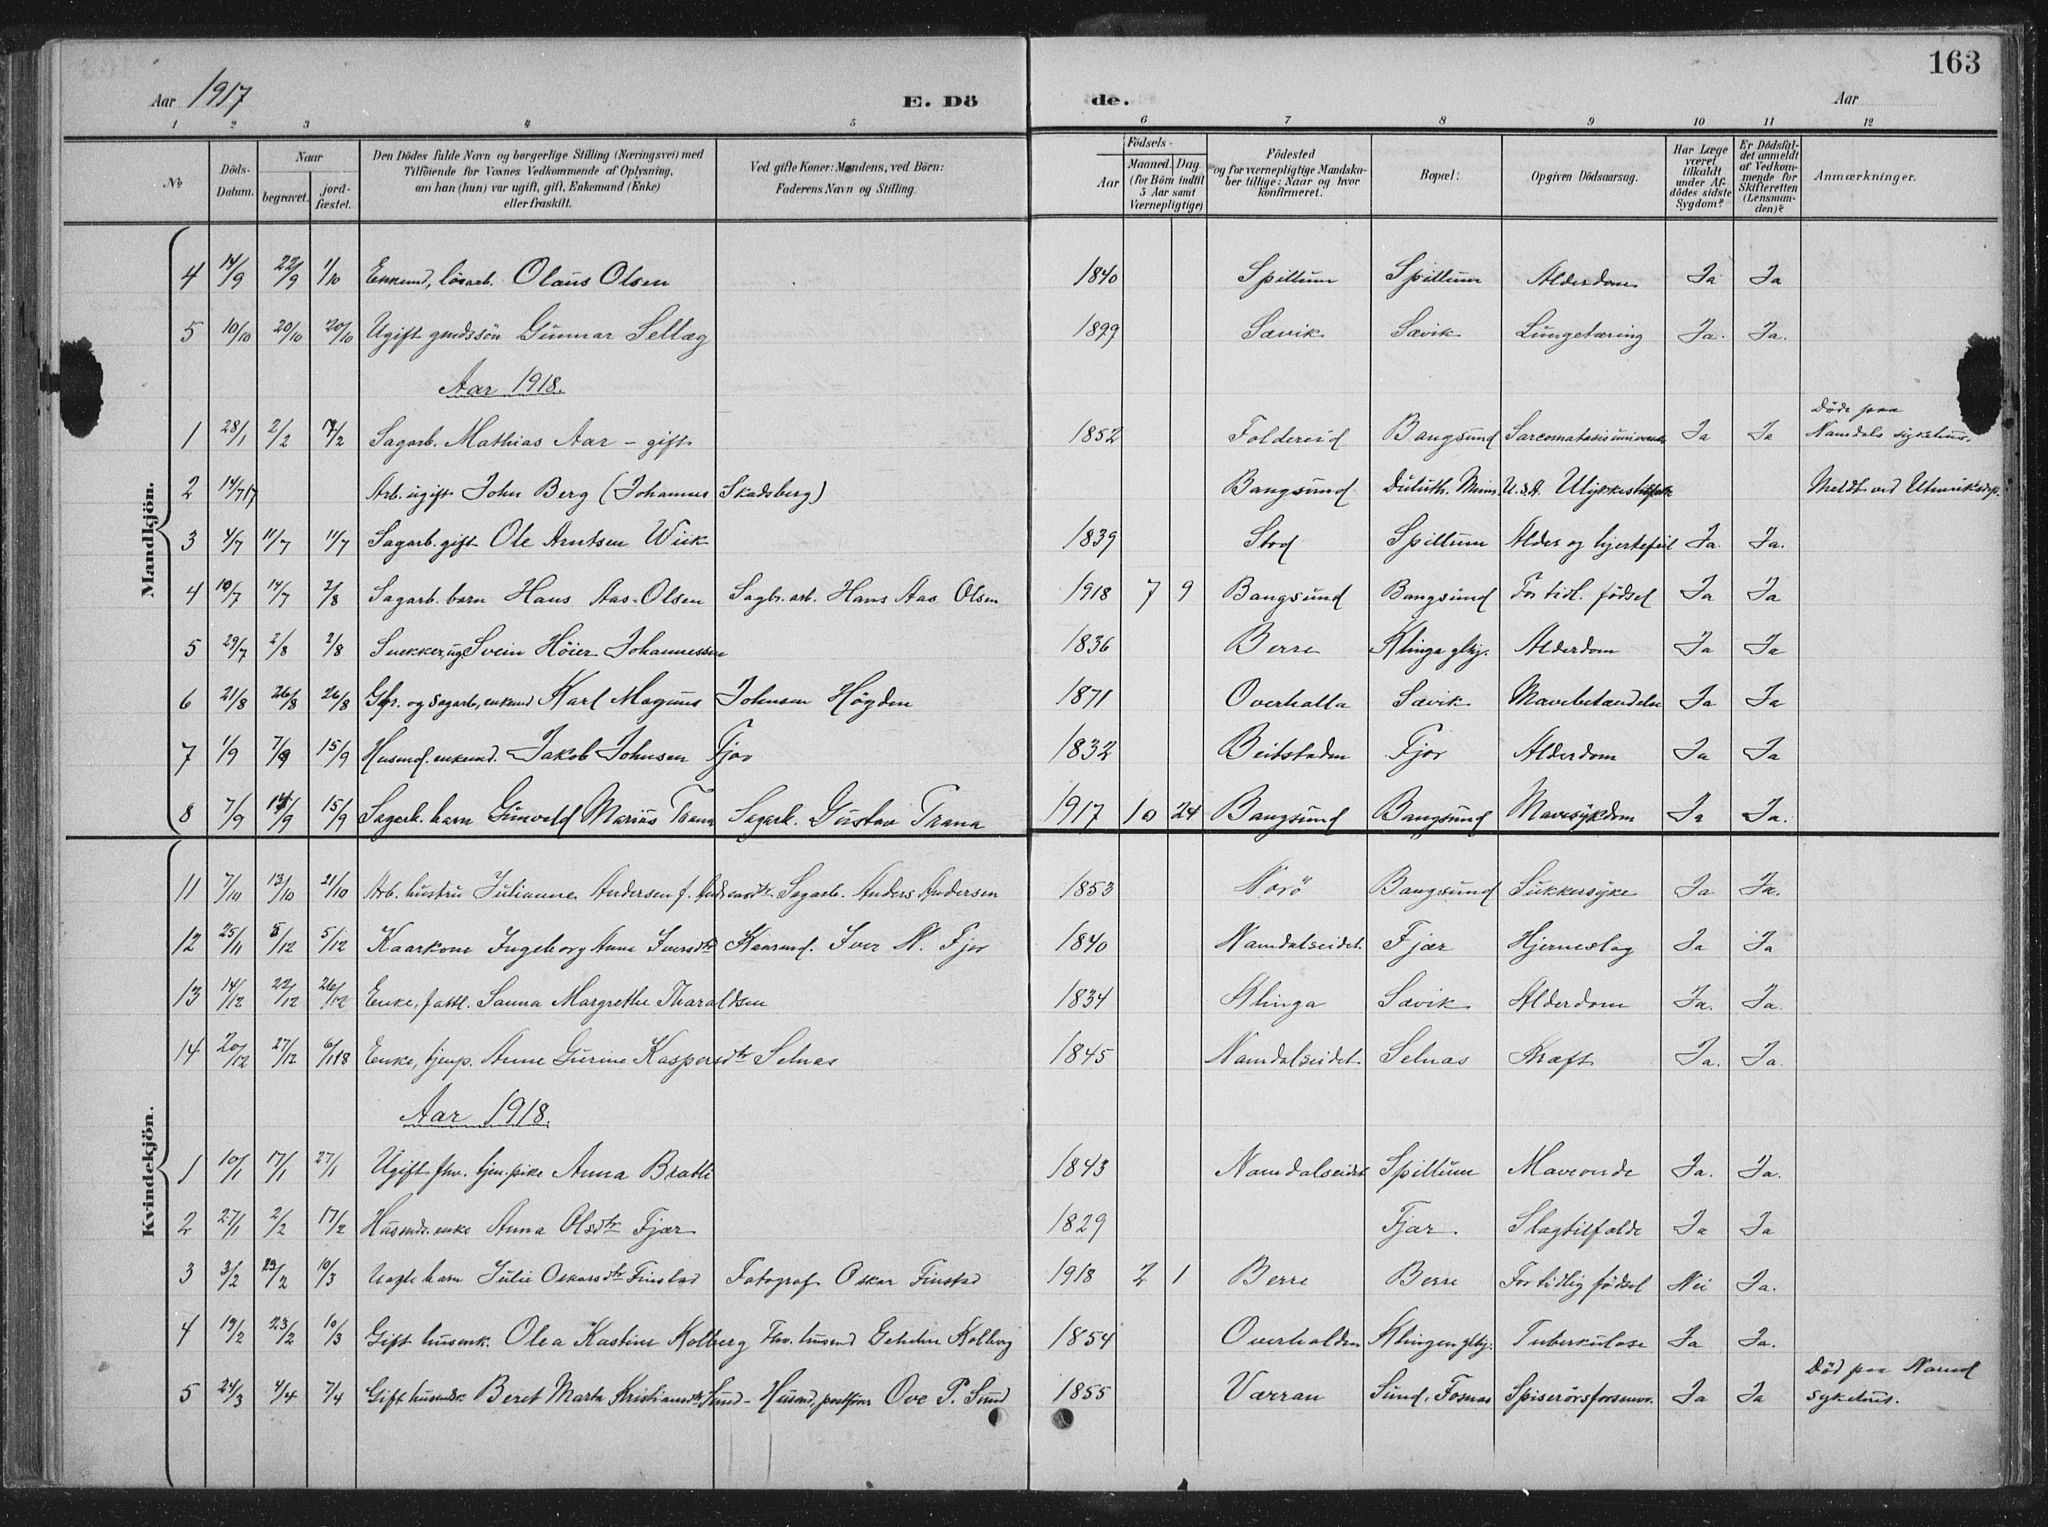 163
Aar 1917 E. Dö de. Aar
1 2 3 4 5 6 7 8 9 10 11 12
No
Döds-Datum.
Naar begravet. jord-fæstet.
Den Dödes fulde Navn og borgerlige Stilling (Næringsvei) med Tilföiende for Voxnes Vedkommende af Oplysning, om han (hun) var ugift, gift, Enkemand (Enke) eller fraskilt.
Ved gifte Koner: Mandens, ved Börn: Faderens Navn og Stilling.
Födsels- Aar Maaned. Dag. (for Börn indtil 5 Aar samt Værnepligtige)
Födested og for værnepligtige Mandskaber tillige: Naar og hvor konfirmeret.
Bopæl:
Opgiven Dödsaarsag.
Har Læge været tilkaldt under Afdödes sidste Sygdom?
Er Dödsfaldet anmeldt af Vedkommende for Skifteretten (Lensmanden)?
Anmærkninger.
Mandkjön.
4 14/9 22/9 1/10 Enkemd, lösarb. Olaus Olsen 1840 Spillum Spillum Alderdom Ja Ja
5 10/10 20/10 20/10 Ugift gmdssön Gunnar Sellæg 1899 Sævik Sævik Lungetæring Ja. Ja.
Aar 1918.
1 28/1 2/2 7/2 Sagarb. Mathias Aar - gift 1852 Foldereid Bangsund Ja Ja Döde paa Namdals sykehus.
2 14/7 17 Arb. ugift John Berg (Johannes Skadsberg) Bangsund Duluth. Minn. U.S.A. Ulykkestilfælde Meldt ved Utenriksdep.
3 4/7 11/7 11/7 Sagarb. gift Ole Arntsen Wiik 1839 Stod Spillum Alder og hjertefeil Ja. Ja.
4 10/7 14/7 2/8 Sagarb. barn Hans Aas-Olsen Sagbr. arb. Hans Aas Olsen 1918 7 9 Bangsund Bangsund For tidl. födsel Ja Ja
5 29/7 2/8 2/8 Snekker, ug Svein Höier Johannessen 1836 Berre Klinga glkj. Alderdom Ja Ja
6 21/8 26/8 26/8 og sagarb, enkemd Karl Magnus Johnsen Högden 1871 Overhalla Sævik Mavebetændelse Ja Ja
7 1/9 7/9 15/9 Husmd. enkemd. Jakob Johnsen Fjær 1832 Beitstaden Fjær Alderdom Ja Ja
8 7/9 14/9 15/9 Sagarb. barn Gunvald Marius Trana Sagarb. Gustav Trana 1917 10 24 Bangsund Bangsund Mavesykdom Ja Ja.
Kvindekjön.
11 7/10 13/10 21/10 Arb. hustru Julianne Andersen f. Sagarb. Anders Andersen 1853 Nærö Bangsund Sukkersyke Ja Ja.
12 25/11 5/12 5/12 Kaarkone Ingeborg Anna Iversdtr Kaarmd. Iver N. Fjær 1840 Namdalseidet. Fjær Hjerneslag Ja Ja
13 14/12 22/12 26/12 Enke, fattl. Sanna Margrethe Tharaldsen 1834 Klinga Sævik Alderdom Ja. Ja.
14 20/12 27/12 6/1 18 Enke, tjenp. Anne Gurine Kaspersdtr Selnæs 1845 Namdalseidet Selnæs Kræft Ja. Ja.
Aar 1918.
1 10/1 17/1 27/1 Ugift fhv. tjen. pike Anna Bratli 1843 Namdalseidet Spillum Maveonde Ja. Ja.
2 27/1 2/2 17/2 Husmds. enke Anna Olsdtr Fjær 1829 Fjær Slagtilfælde Ja Ja
3 3/2 23/2 10/3 Uægte barn Julie Oskarsdtr Finstad Fotograf Oskar Finstad 1918 2 1 Berre Berre For tidlig födsel Nei Ja.
4 19/2 23/2 10/3 Gift husmk. Olea Kastine Kolberg Fhv. husmd Kolberg 1854 Overhalden Klingen glkj. Tuberkulose Ja Ja.
5 24/3 4/4 7/4 Gift husmdsk. Beret Marta Kristiansdtr Sund - Husmd, postförer Ove P. Sund 1855 Værran Sund, Fosnæs Spiserörsforsnevr. Ja Ja Död paa Namd sykehus.